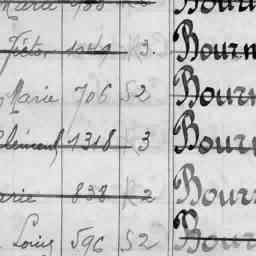 Marie 988 K2 Bourn
Victor 1049 K3. Bourn
Marie 706 S2 Bourn
Clément 1318 K3 Bourn
Marie 838 K2 Bourn
Louis 596 S2 Bourn